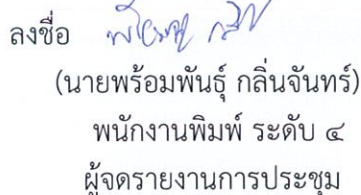 ลงชื่อ
(นายพร้อมพันธุ์ กลิ่นจันทร์)
พนักงานพิมพ์ ระดับ ๔
ผู้จดรายงานการประชุม